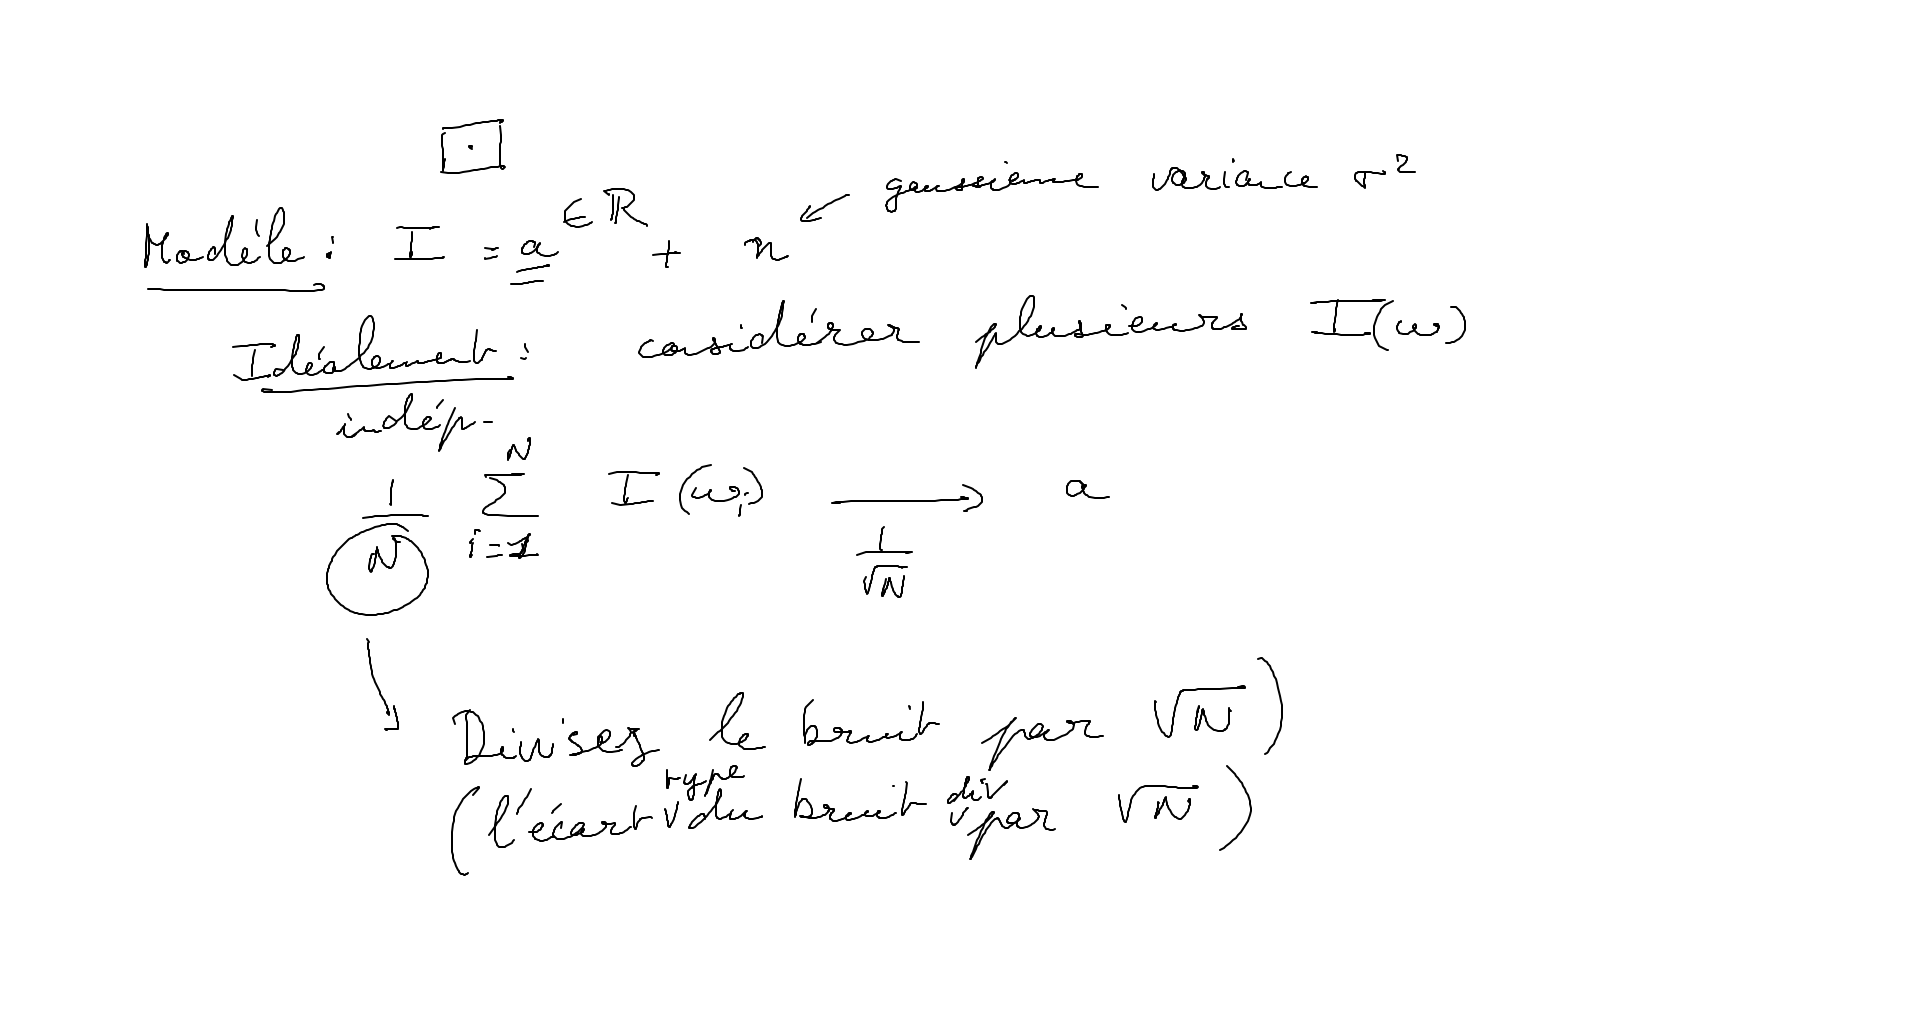 gaussienne variance σ²
Modéle : I = a ∈ ℝ + n
Idéalement : considérer plusieurs I(ω)
indép.
1/N ∑_{i=1}^{N} I(ω_i) ⟶ a
1/√N
Divisez le bruit par √N)
(l'écart type du bruit div par √N)